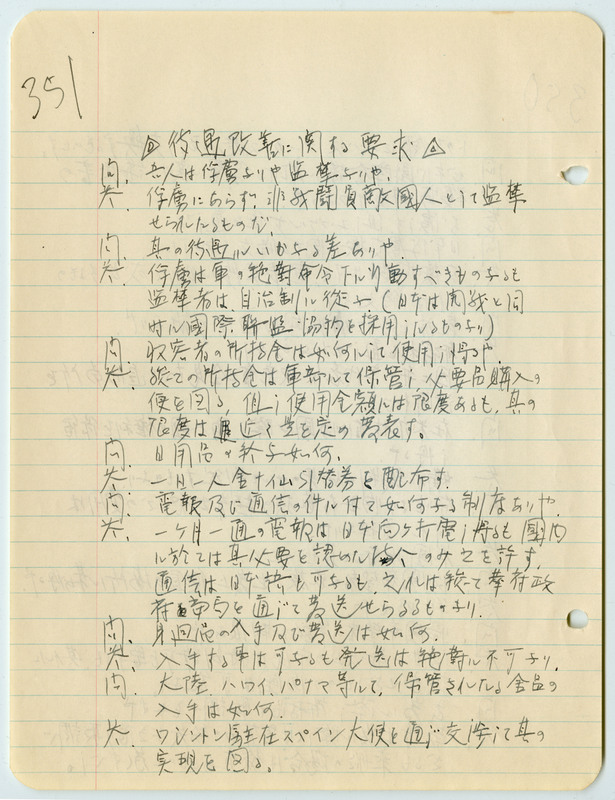 351
待遇改善に関する要求
問. 吾人は俘虜なりや監禁なりや.
答. 俘虜にあらず, 非戦闘員敵國人として監禁
せられたるものだ.
問. 其の待遇にいかなる差ありや.
答. 俘虜は軍の絶對命令下により動すべきものなるも
監禁者は自治制に從ふ(日本は開戦と同
時に國際聯盟協約を採用したるものなり)
問. 収容者の所持金は如何にして使用し得るや.
答. 総ての所持金は軍部にて保管し, 必要品購入の
便を図る, 但し使用金額には限度あるも, 其の
限度は近く之を定め発表す.
問. 日用品の給与如何.
答. 一日一人金十仙引替券を配布す.
問. 電報及び通信の件に付て如何なる制度ありや.
答. 一ヶ月一通の電報は日本向け打電し得るも國内
に於ては其必要を認めたる人のみ之を許す.
通信は日本語も可なるも, 之れは総て華府政
府当局を通じて発送せらるるものなり.
問. 身廻品の入手及び発送は如何.
答. 入手する事は可なるも発送は絶對に不可なり.
問. 大陸, ハワイ, パナマ等にて, 保管されたる金品の
入手は如何.
答. ワシントン駐在スペイン大使を通じ交渉して其の
実現を図る.